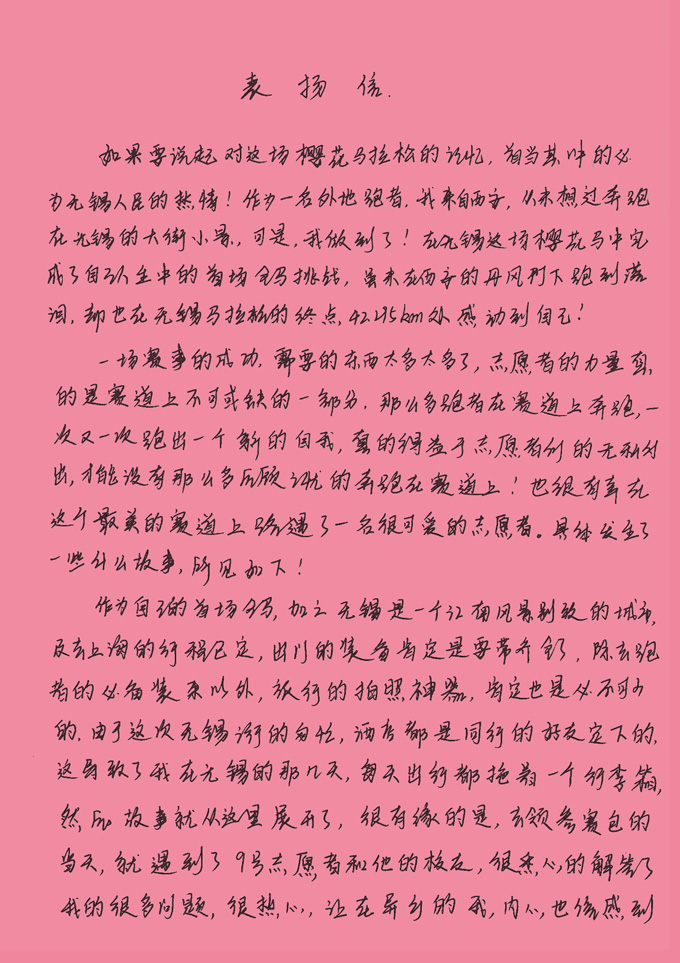 表扬信.
如果要说起对这场樱花马拉松的记忆，首当其冲的必
为无锡人民的热情！作为一名外地跑者，我来自西安，从未想过奔跑
在无锡的大街小景，可是，我做到了！在无锡这场樱花马中完
成了自己人生中的首场全马挑战，虽未在西安的丹凤门下跑到落
泪，却也在无锡马拉松的终点，42.195km处感动到自己！
一场赛事的成功，需要的东西太多太多了，志愿者的力量真
的是赛道上不可或缺的一部分，那么多跑者在赛道上奔跑，一
次又一次跑出一个新的自我，真的得益于志愿者们的无私付
出，才能没有那么多后顾之忧的奔跑在赛道上！也很有幸在
这个最美的赛道上路遇了一名很可爱的志愿者。具体发生了
一些什么故事，所见如下！
作为自己的首场全马，加之无锡是一个江南风景别致的城市，
及去上海的行程已定，出门的装备肯定是要带齐的，除去跑
者的必备装束以外，旅行的拍照神器，肯定也是必不可少
的，由于这次无锡之行的匆忙，酒店都是同行的好友定下的，
这导致了我在无锡的那几天，每天出行都拖着一个行李箱，
然后故事就从这里展开了，很有缘的是，去领参赛包的
当天，就遇到了9号志愿者和他的校友，很热心的解答了
我的很多问题，很热心，让在异乡的我，内心也倍感到